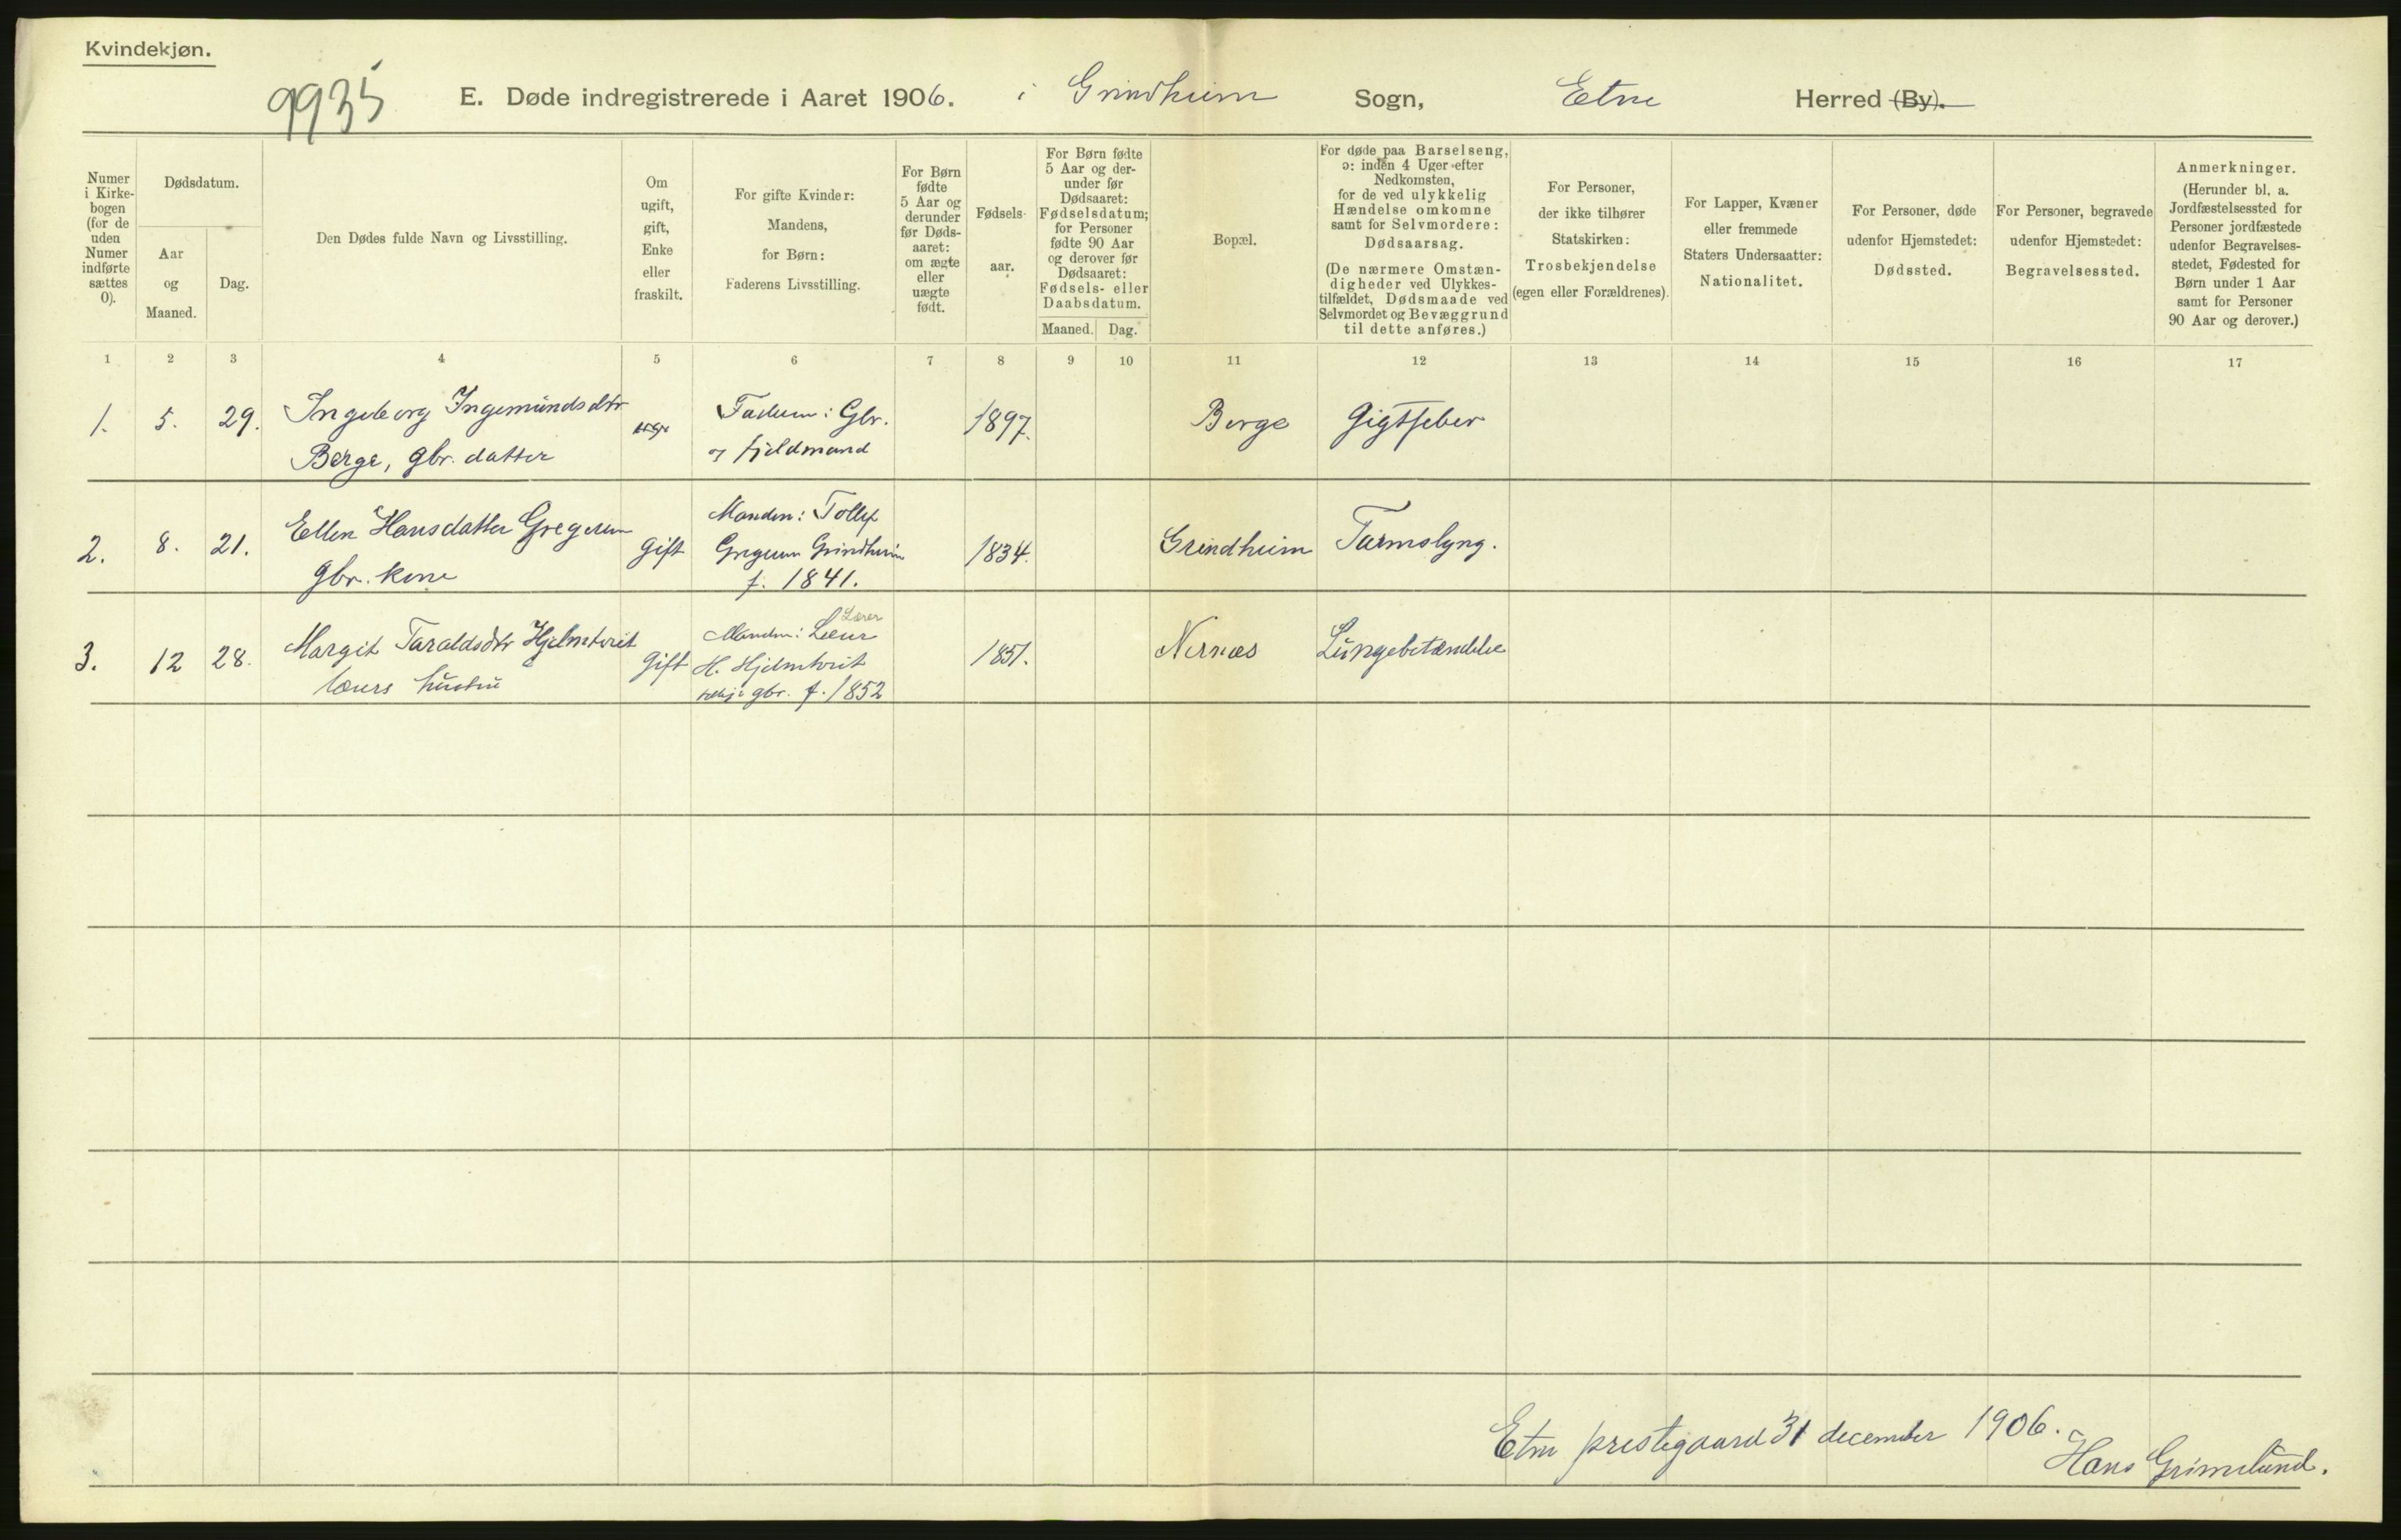 Kvindekjøn.
9935
E. Døde indregistrerede i Aaret 1906. i Grindheim Sogn, Etne Herred (By).
Numer
i Kirke-
bogen
(for de
uden
Numer
indførte
sættes
0).
Dødsdatum.
Aar
og
Maaned.
Dag.
Den Dødes fulde Navn og Livsstilling.
Om
ugift,
gift,
Enke
eller
fraskilt.
For gifte Kvinder:
Mandens,
for Børn:
Faderens Livsstilling.
For Børn
fødte
5 Aar og
derunder
før Døds-
aaret:
om ægte
eller
uægte
født.
Fødsels-
aar.
For Børn fødte
5 Aar og der-
under før
Dødsaaret:
Fødselsdatum;
for Personer
fødte 90 Aar
og derover før
Dødsaaret:
Fødsels- eller
Daabsdatum.
Maaned. Dag.
Bopæl.
For døde paa Barselseng,
ɔ: inden 4 Uger efter
Nedkomsten,
for de ved ulykkelig
Hændelse omkomne
samt for Selvmordere:
Dødsaarsag.
(De nærmere Omstæn-
digheder ved Ulykkes-
tilfældet, Dødsmaade ved
Selvmordet og Bevæggrund
til dette anføres.)
For Personer,
der ikke tilhører
Statskirken:
Trosbekjendelse
(egen eller Forældrenes).
For Lapper, Kvæner
eller fremmede
Staters Undersaatter:
Nationalitet.
For Personer, døde
udenfor Hjemstedet:
Dødssted.
For Personer, begravede
udenfor Hjemstedet:
Begravelsessted.
Anmerkninger.
(Herunder bl. a.
Jordfæstelsessted for
Personer jordfæstede
udenfor Begravelses-
stedet, Fødested for
Børn under 1 Aar
samt for Personer
90 Aar og derover.)
1 2 3 4 5 6 7 8 9 10 11 12 13 14 15 16 17
1. 5. 29. Ingeborg Ingemundsdtr Faderen: Gbr. 1897. Berge Gigtfeber
Berge, gbr. datter og fjeldmand
2. 8. 21. Ellen Hansdatter Gregersen Gift Manden: Tollef 1834. Grindheim Tarmslyng.
gbr. kone Gregersen Grindheim
f. 1841.
3. 12 28. Margit Taraldsdtr Hjelmtveit Gift Manden: Lærer 1851. Nernæs Lungebetændelse
Lærer
lærers hustru H. Hjelmtveit
gbr. f. 1852
Etne prestegaard 31 december 1906.
Hans Grimelund.